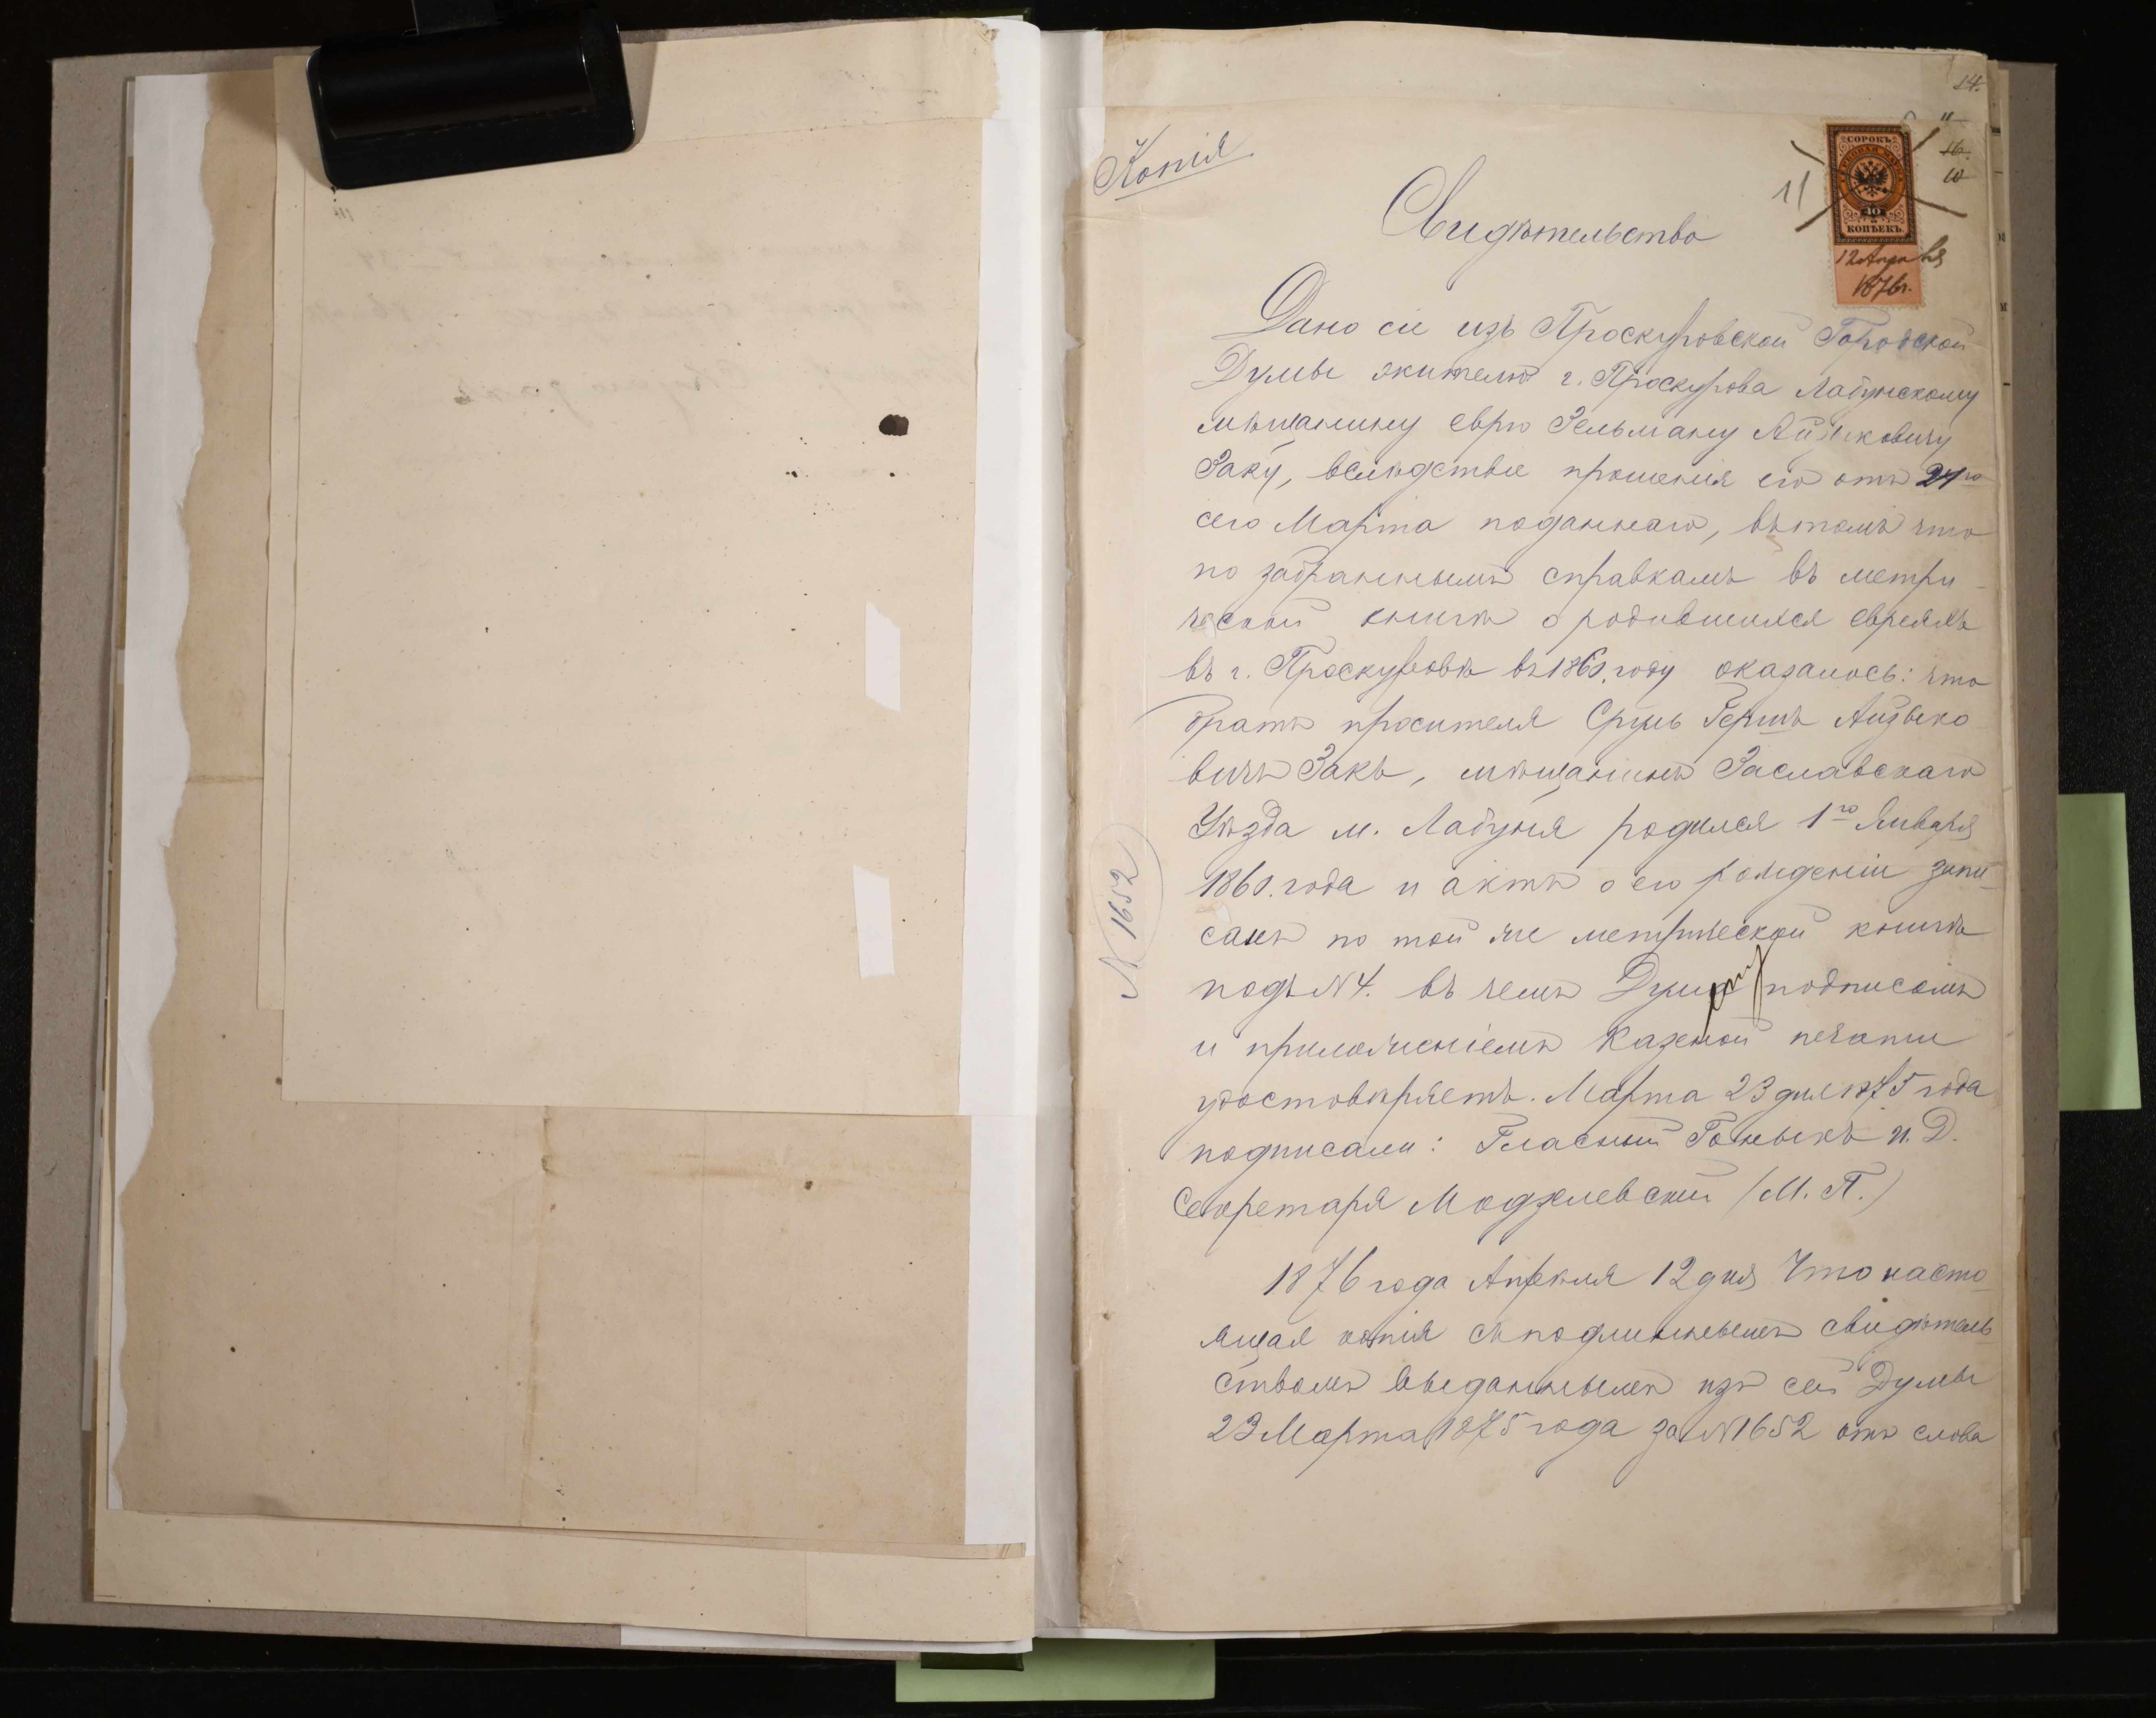 14.
Копія
16.
10
11
СОРОКЪ
40
КОПѢЕКЪ.
12 Апрѣля
1876 г.
Свидѣтельство
Дано сіе изъ Проскуровской Городской
Думы жителю г. Проскурова Лабунскому
мѣщанину еврю Зельману Айзиковичу
Заку, вслѣдствіе прошенія его отъ 21го
сего Марта поданнаго, въ томъ что
по забраннымъ справкамъ въ метри-
ческой книгѣ о родившихся евреяхъ
въ г. Проскуровѣ въ 1860. году оказалось: что
братъ просителя Сруль Гершъ Айзыко-
вичъ Закъ, мѣщанинъ Заславскаго
Уѣзда м. Лабуня родился 1го Января
1860. года и актъ о его рожденіи запи-
санъ по той же метрической книгѣ
подъ № 4. въ чемъ Дума подписомъ
и приложеніемъ казеной печати
удостовѣряетъ. Марта 23 дня 1875 года
подписали: Гласный И. Д.
Секретаря Модзелевскій (М. П.)
№ 1652
1876 года Апрѣля 12 дня Что насто-
ящая копія съ подлиннымъ свидѣтель-
ствомъ выданнымъ изъ сей Думы
23 Марта 1875 года за № 1652 отъ слова